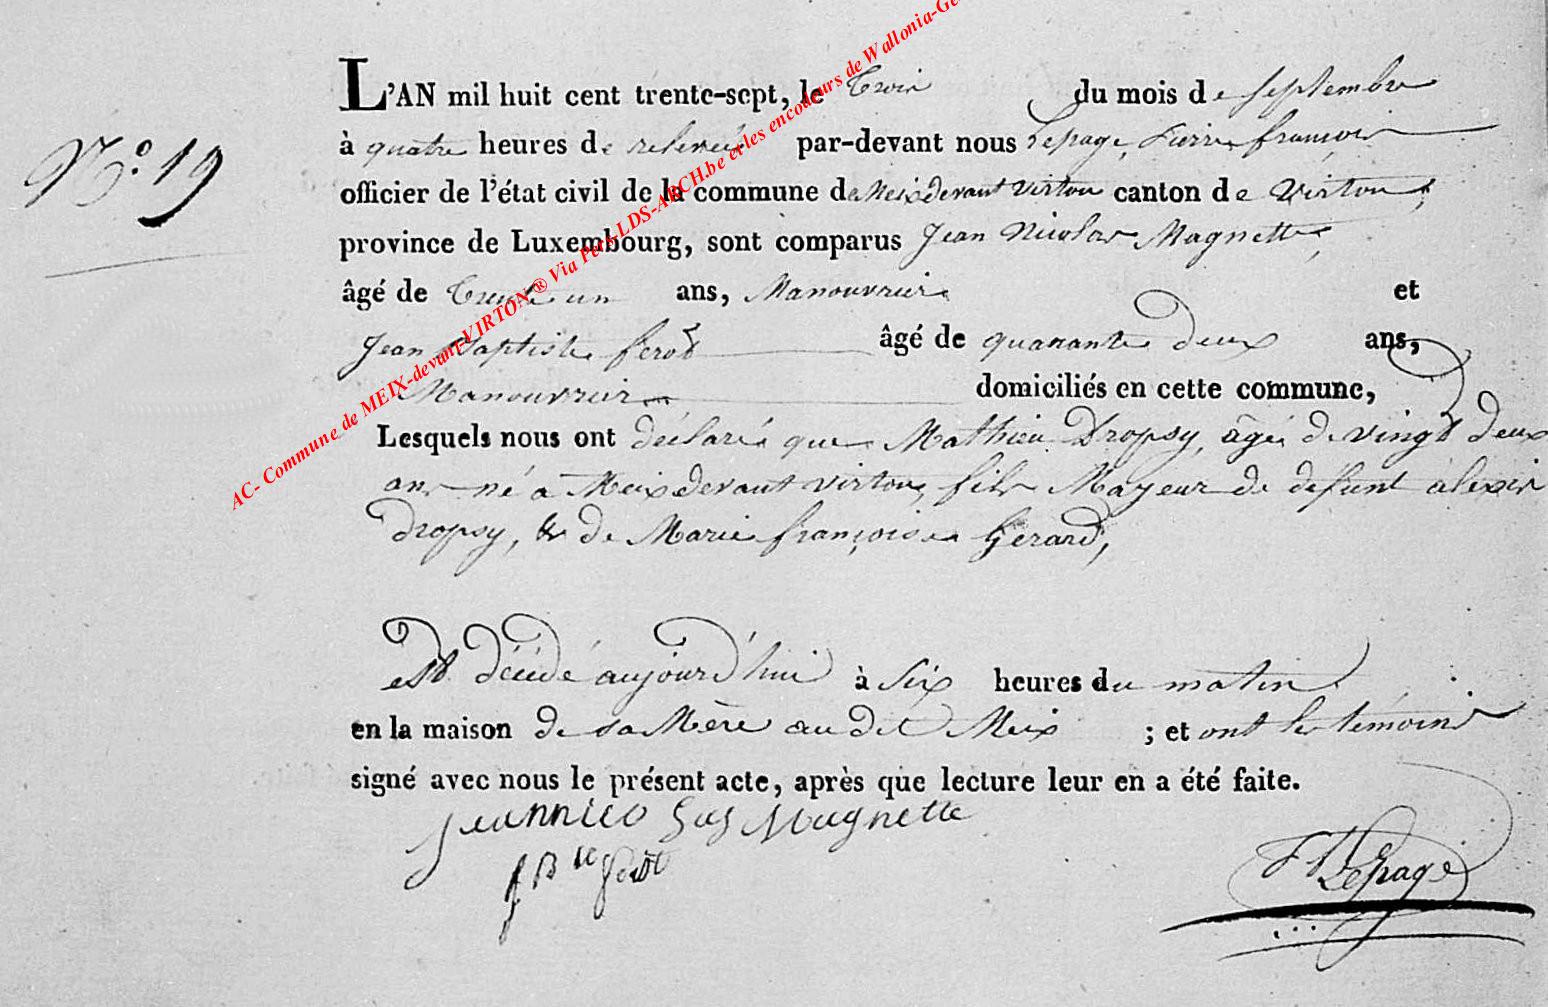 N.o 19
L'AN mil huit cent trente-sept, le trois du mois de septembre
à quatre heures de relevée par-devant nous Lepage, Pierre françois
officier de l'état civil de la commune de Meix devant virton canton de Virton,
province de Luxembourg, sont comparus Jean Nicolas Magnette,
âgé de trente un ans, Manouvrier et
Jean Baptiste ferot âgé de quarante deux ans,
Manouvrier domiciliés en cette commune,
Lesquels nous ont déclaré que Mathieu Dropsy, âgé de vingt deux
ans né à Meix devant virton, fils Mayeur de defunt alexis
dropsy, & de Marie françoise Gerard,
est décédé aujourd'hui à six heures du matin
en la maison de sa Mère au dit Meix ; et ont les témoins
signé avec nous le présent acte, après que lecture leur en a été faite.
jeannico las Magnette
J B te ferot
Lepage
AC- Commune de MEIX-devant-VIRTON® Via Pers-LDS-ARCH.be et les encodeurs de Wallonia-Ge